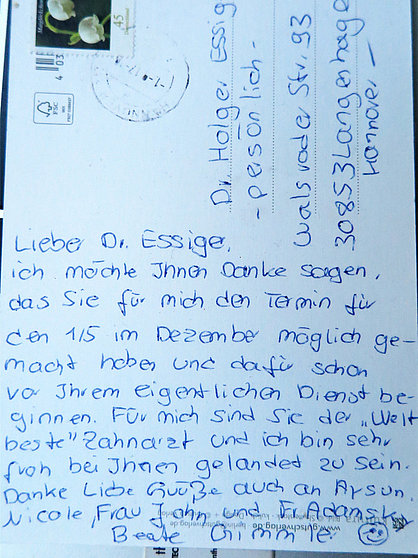 45
4 03
FSC
Dr. Holger Essig
- persönlich -
Walsroder Str. 93
30853 Langenhage
Hannover
Lieber Dr. Essige,
ich möchte Ihnen Danke sagen,
das Sie für mich den Termin für
den 1/5 im Dezember möglich ge-
macht haben und dafür schon
vor Ihrem eigentlichen Dienst be-
ginnen. Für mich sind Sie der „Welt
beste" Zahnarzt und ich bin sehr
froh bei Ihnen gelandet zu sein.
Danke Liebe Grüße auch an Aysun,
Nicole, Frau Jahn und F. Adamsk
Beate Grimmle